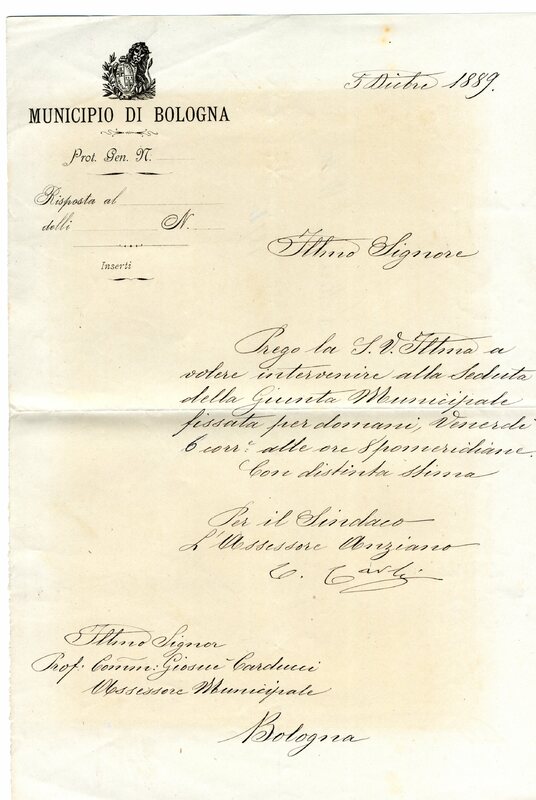 5 Dicbre 1889.
MUNICIPIO DI BOLOGNA
Prot. Gen. N.
Risposta al
delli N.
Inserti
Illmo Signore
Prego la S. V. Illma a
volere intervenire alla Seduta
della Giunta Municipale
fissata per domani, Venerdì
6 corr.e alle ore 8 pomeridiane.
Con distinta stima
Per il Sindaco
L'Assessore Anziano
C. Carli
Illmo Signor
Prof: Comm: Giosuè Carducci
Assessore Municipale
Bologna